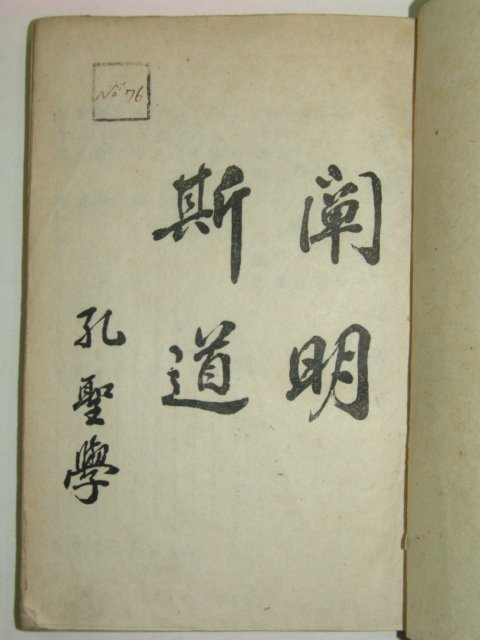 No 76
闡明
斯道
孔聖學